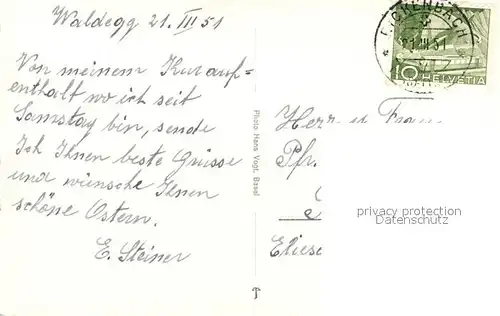 Waldegg 21. III 51
Von meinem Kurauf-
enthalt wo ich seit
Samstag bin, sende
Ich Ihnen beste Grüsse
und wünsche Ihnen
schöne Ostern.
E. Steiner
Photo Hans Vogt, Basel
10 HELVETIA
Herr u Frau
Pfr.
privacy protection
Datenschutz